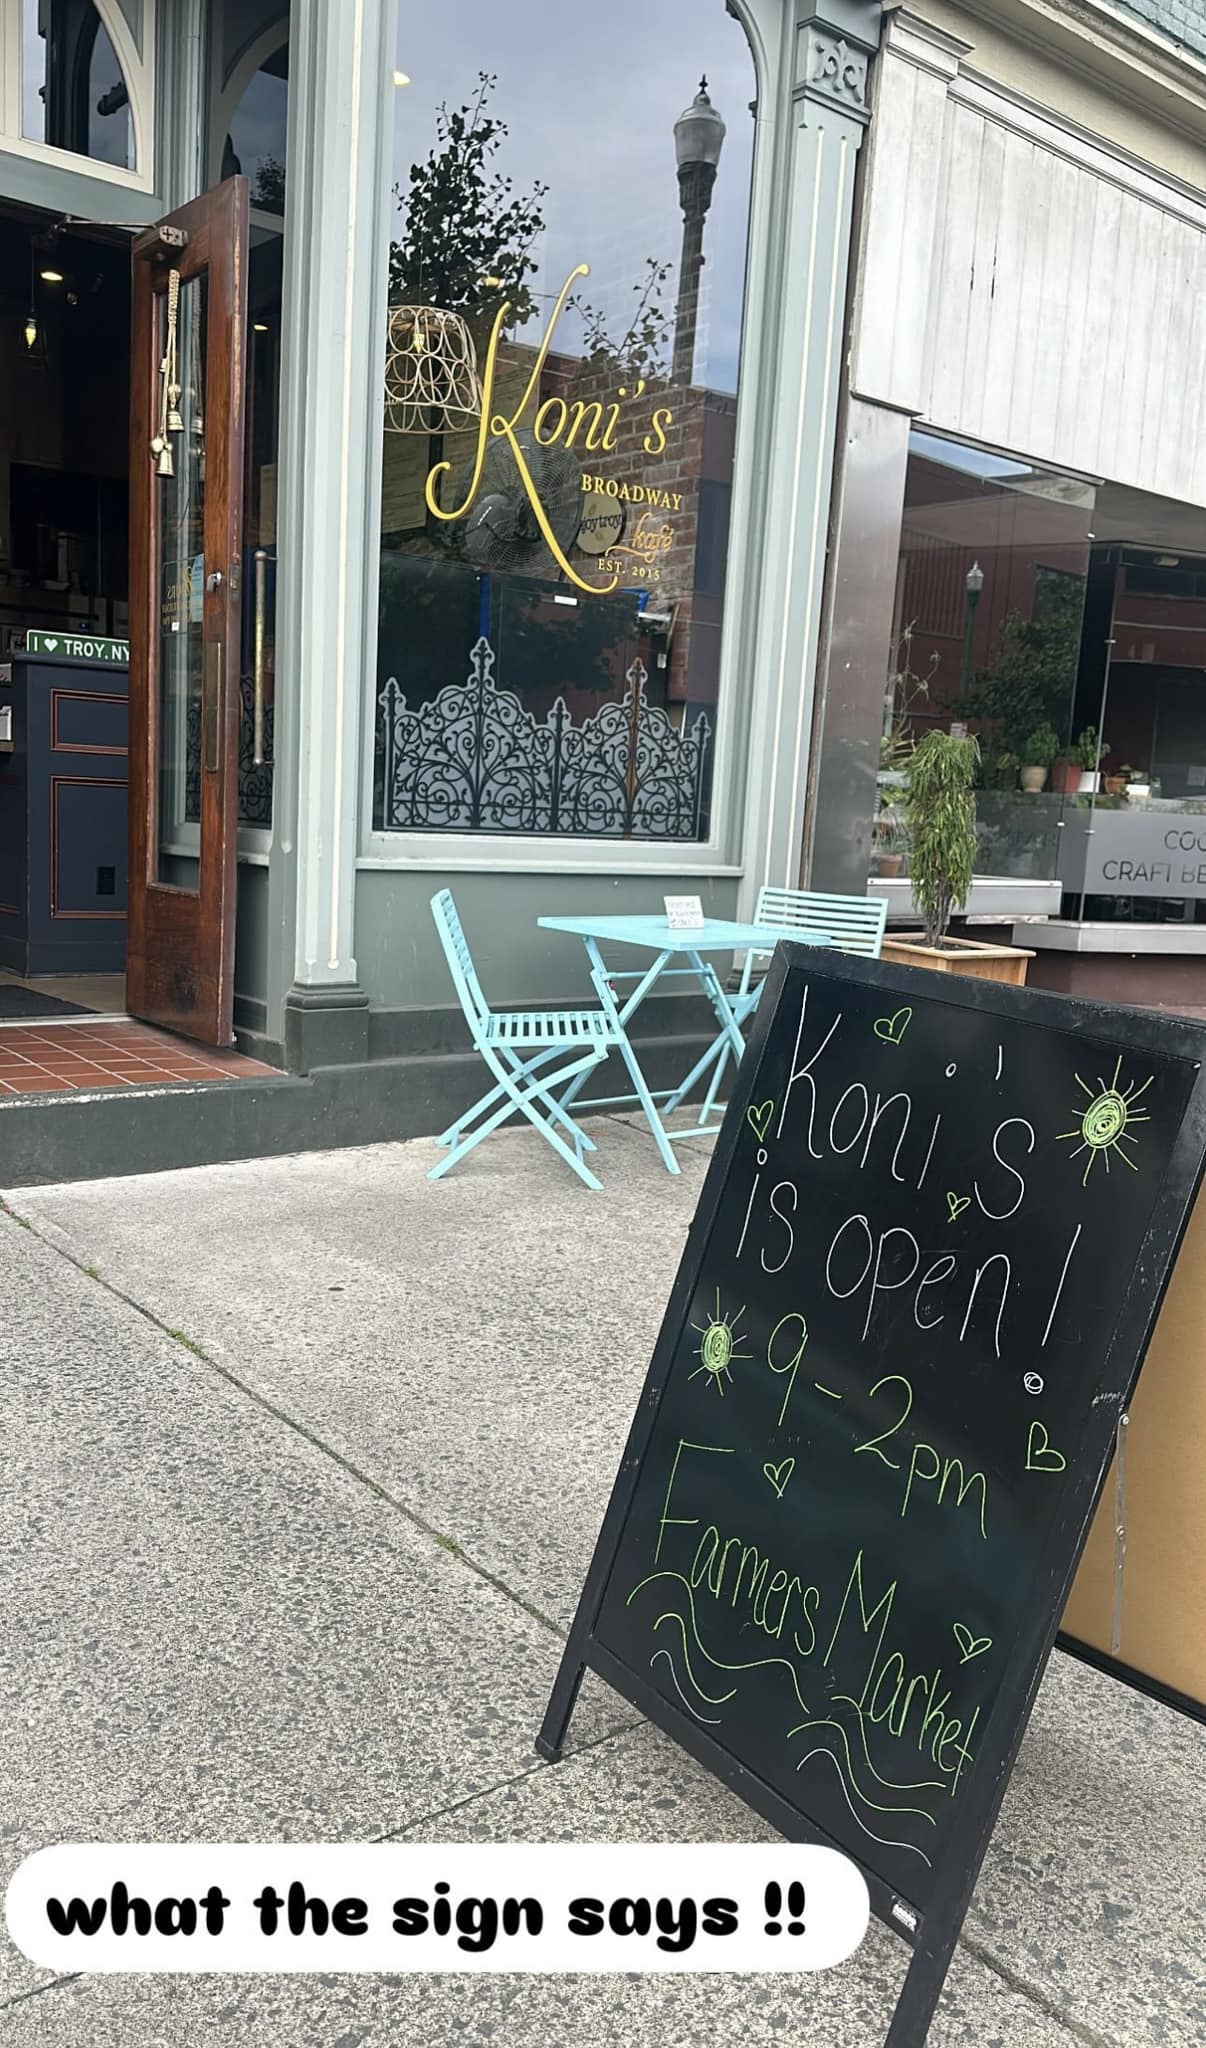 Koni's
BROADWAY
joytroy
kafé
EST. 2015
I ♥ TROY, NY
COO
CRAFT BE
Koni's
is open!
9-2pm
Farmers Market
what the sign says !!